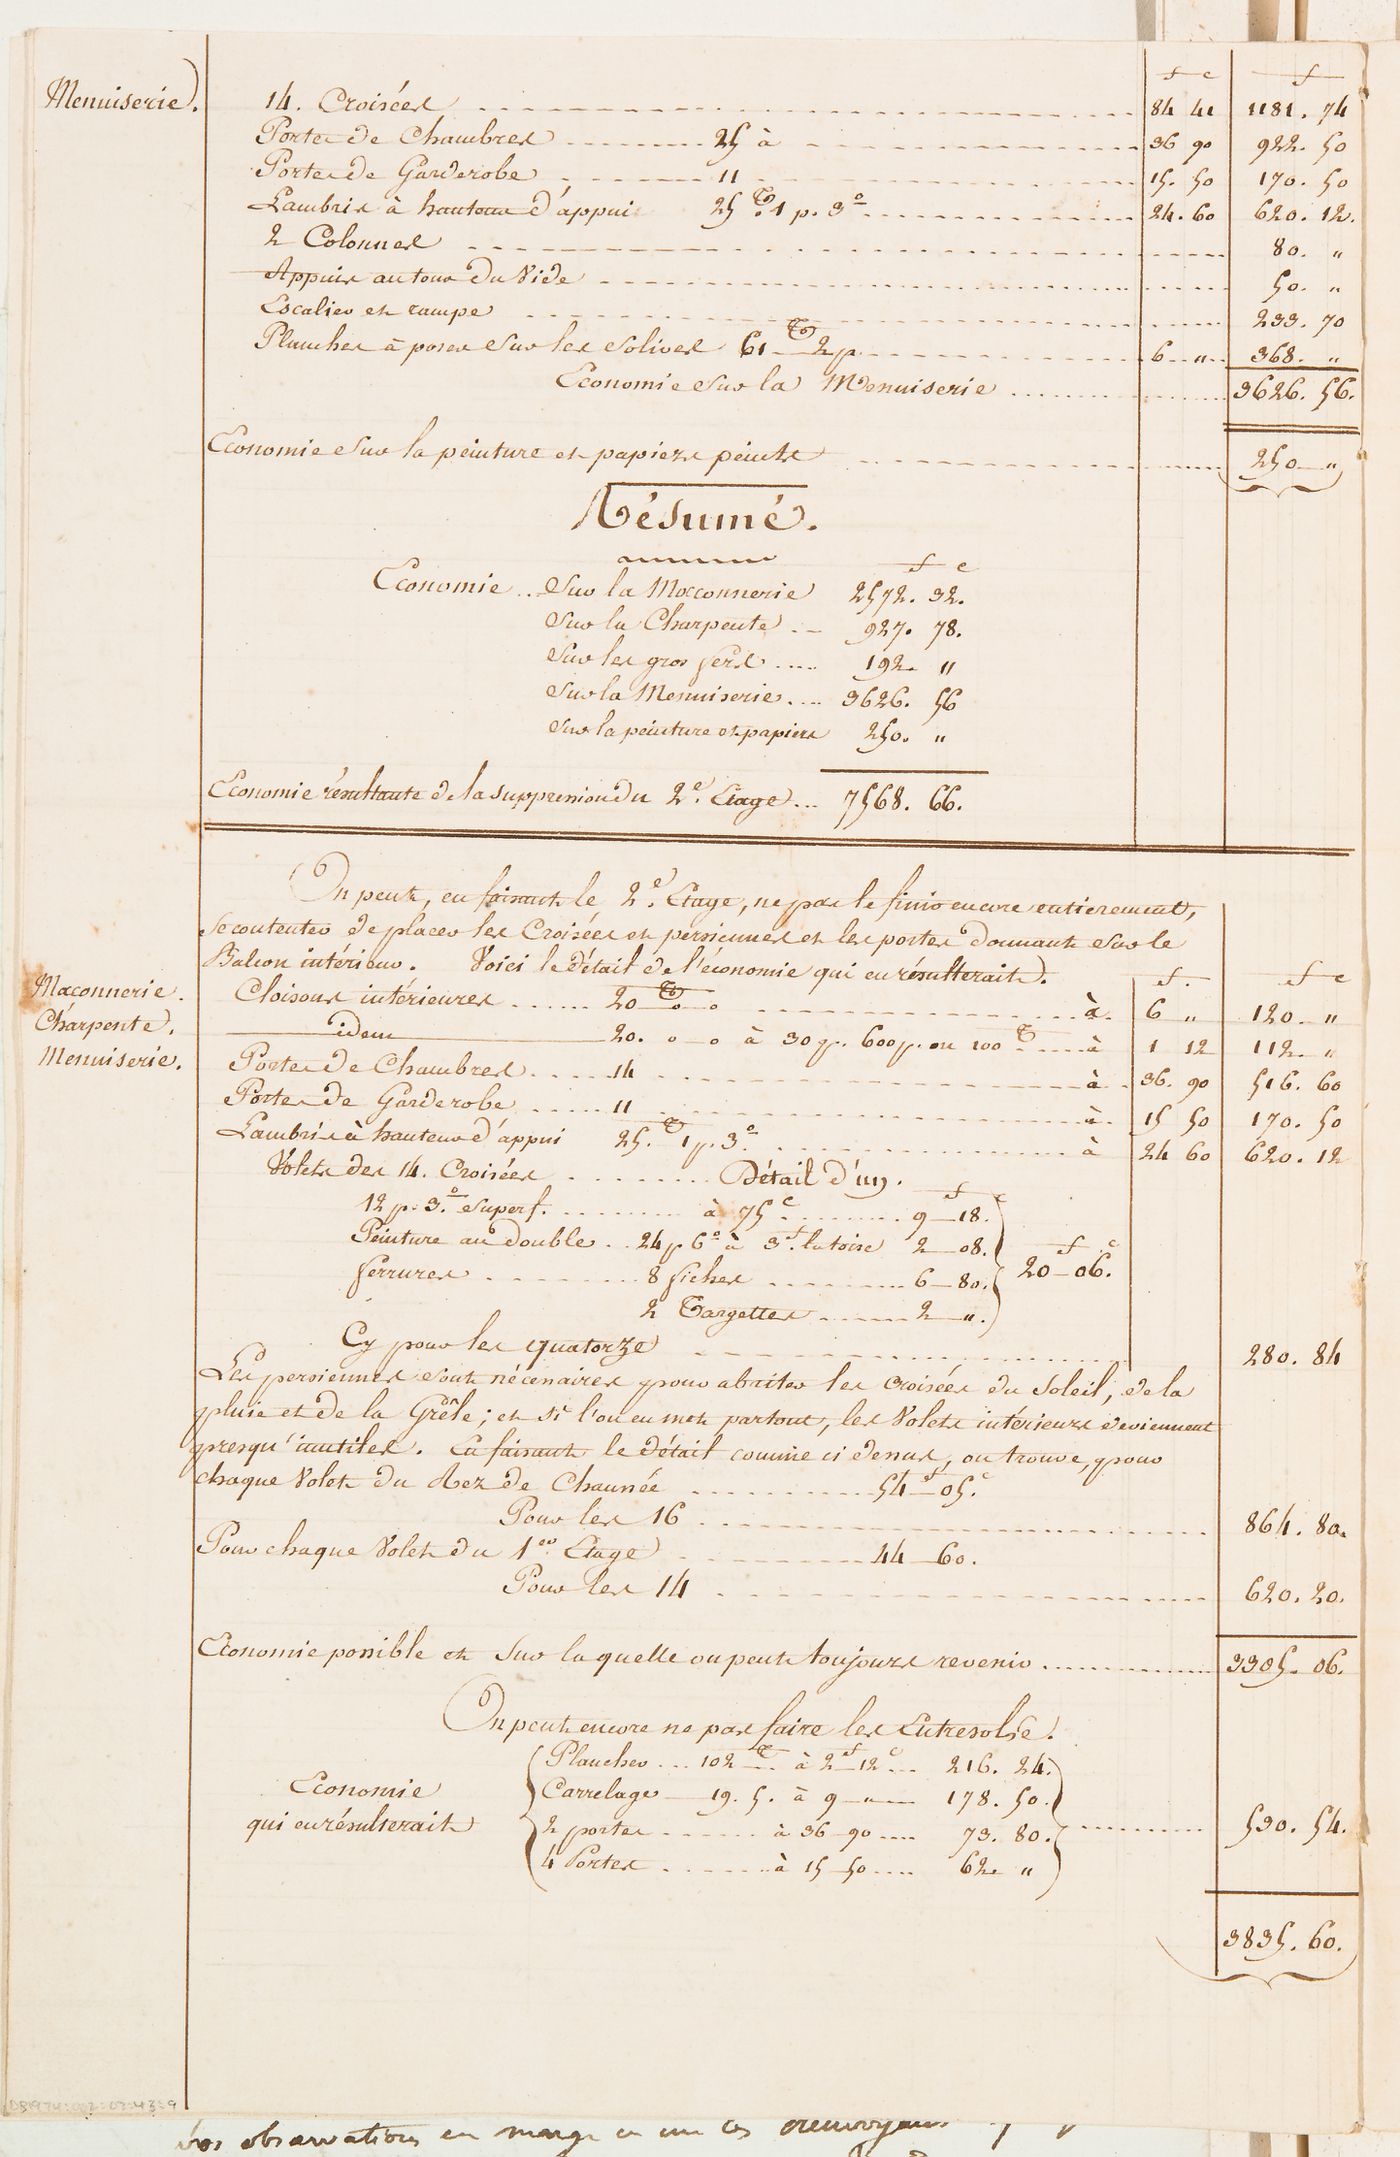 f c f
Menuiserie. 14. Croisées 84 41 1181. 74
Portes de Chambres 25 à 36 90 922. 50
Portes de Garderobe 11 15. 50 170. 50
Lambris à hauteur d'appui 25 T. 1 p. 3° 24. 60 620. 12.
2 Colonnes 80. "
Appuis autour du Vide 50. "
Escalier et rampe 233. 70
Planches à poser sur les solives 61 T 2p 6 " 368. "
Economie sur la Menuiserie 3626. 56.
Economie sur la peinture et papiers peints 250 "
Résumé.
f c
Economie .. Sur la Maçonnerie 2572. 32.
Sur la Charpente 927. 78.
Sur les gros fers 192. "
Sur la Menuiserie 3626. 56
Sur la peinture et papiers 250. "
Economie résultante de la suppression du 2e. Etage ... 7568. 66.
On peut, en faisant le 2e. Etage, ne pas le finir encore entierement,
se contenter de placer les Croisées et persiennes et les portes donnant sur le
Balcon intérieur. Voici le détail de l'économie qui en résulterait.
f. f c
Maçonnerie. Cloisons intérieures 20 T o o à 6 " 120. "
Charpente. idem 20. o o à 30 p. 600 p. ou 100 T à 1 12 112. "
Menuiserie. Portes de Chambres 14 à 36. 90 516. 60
Portes de Garderobe 11 à 15 50 170. 50
Lambris à hauteur d'appui 25. T 1 p. 3° à 24 60 620. 12
Volets des 14. Croisées Détail d'un.
f c
12 p. 3.° superf. à 75c 9 18.
Peinture au double 24 p 6° à 3f. la toise 2 08.
f c
ferrures 8 fiches 6 80. 20 06.
2 Targettes 2 ".
Cy pour les quatorze 280. 84
Les persiennes sont nécessaires pour abriter les croisées du Soleil, de la
pluie et de la Grêle; et si l'on en met partout, les Volets intérieurs deviennent
presqu'inutiles. En faisant le détail comme ci dessus, on trouve, pour
chaque Volet du Rez de Chaussée 54 f 05. c
Pour les 16 864. 80.
Pour chaque Volet du 1er. Etage 44 60.
Pour les 14 620. 20.
Economie possible et sur laquelle on peut toujours revenir 3305. 06.
On peut encore ne pas faire les Entresols.
Plancher ... 102 T. à 2 f 12 c ... 216. 24.
Economie Carrelage 19. 5. à 9 " 178. 50.
qui en résulterait 2 portes à 36 90 73. 80. 530. 54.
4 Portes à 15 50 62. "
3835. 60.
vos observations en marge